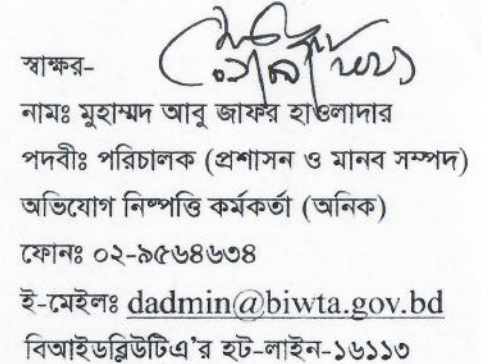 স্বাক্ষর-
নামঃ মুহাম্মদ আবু জাফর হাওলাদার
পদবীঃ পরিচালক (প্রশাসন ও মানব সম্পদ)
অভিযোগ নিষ্পত্তি কর্মকর্তা (অনিক)
ফোনঃ ০২-৯৫৬৪৬৩৪
ই-মেইলঃ dadmin@biwta.gov.bd
বিআইডব্লিউটিএ'র হট-লাইন-১৬১১৩